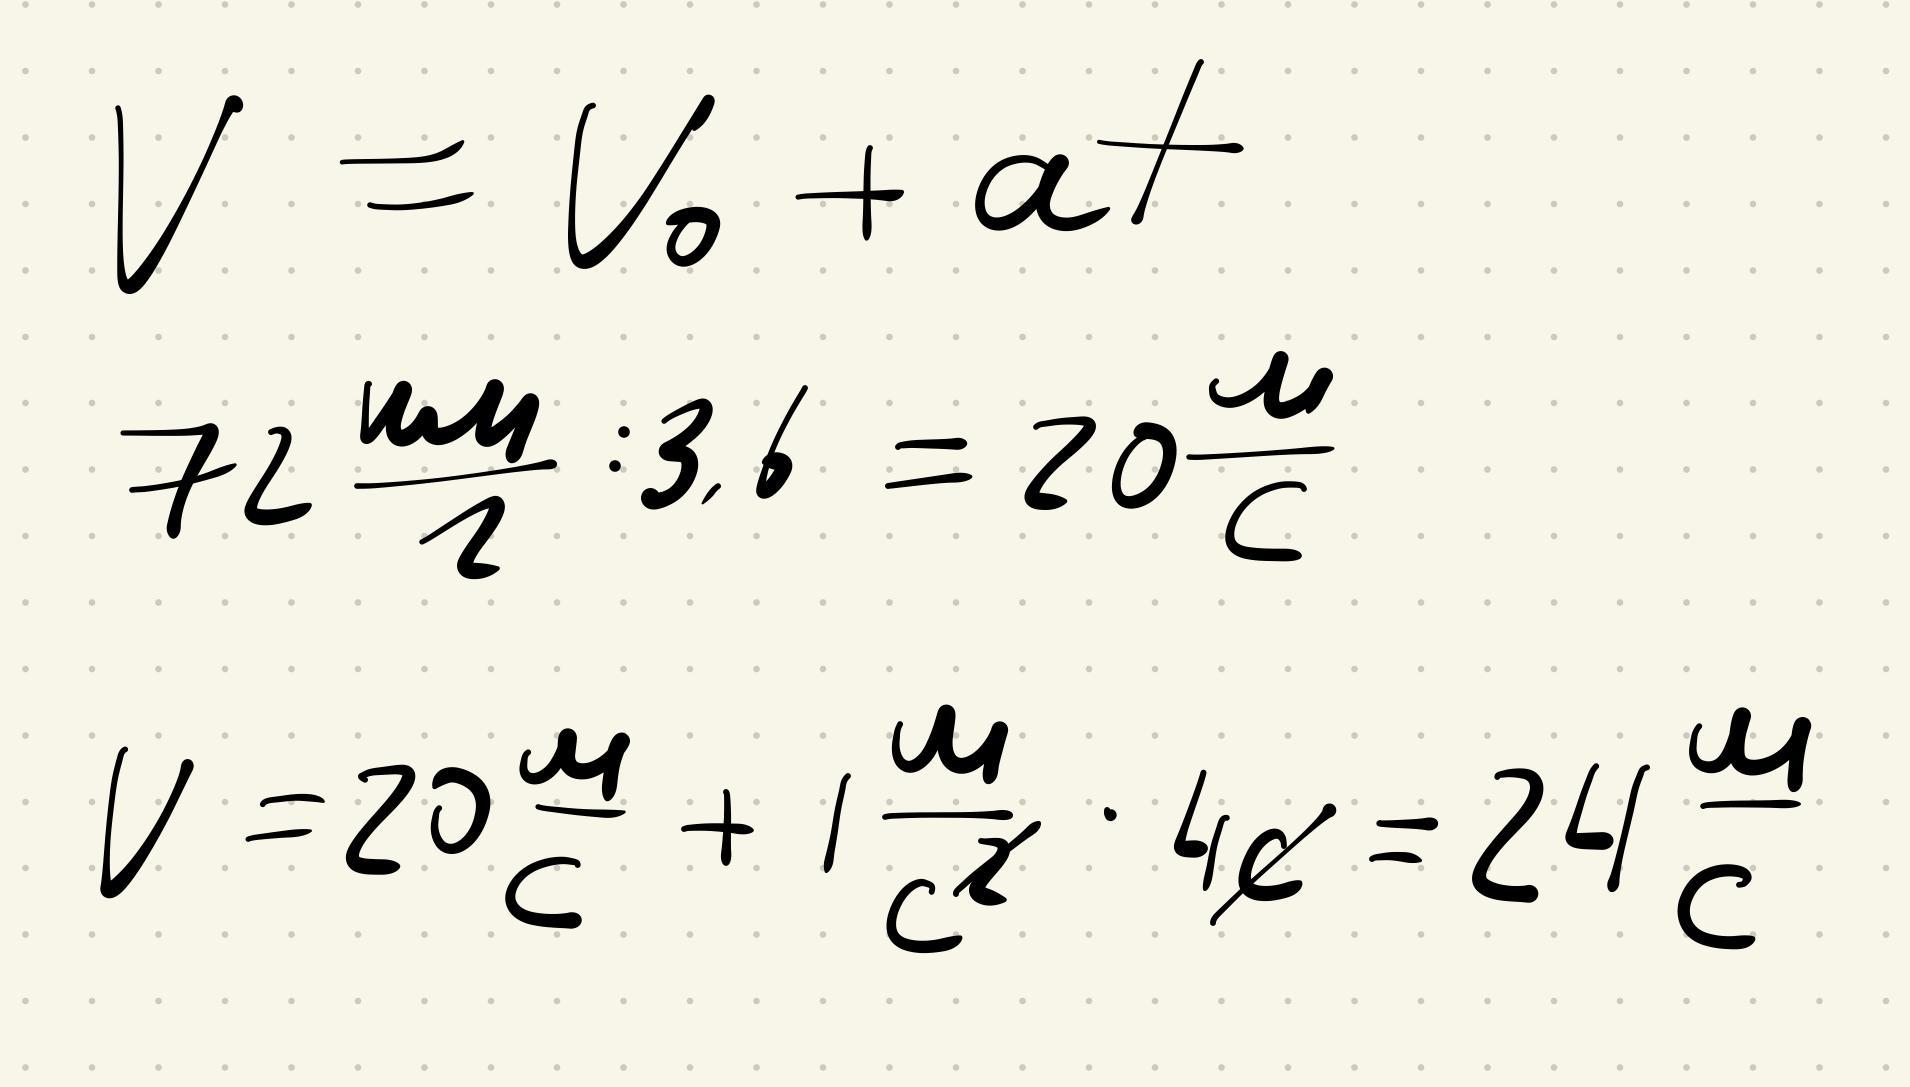 V = V₀ + at
72 км/г : 3,6 = 20 м/с
V = 20 м/с + 1 м/с² · 4с = 24 м/с